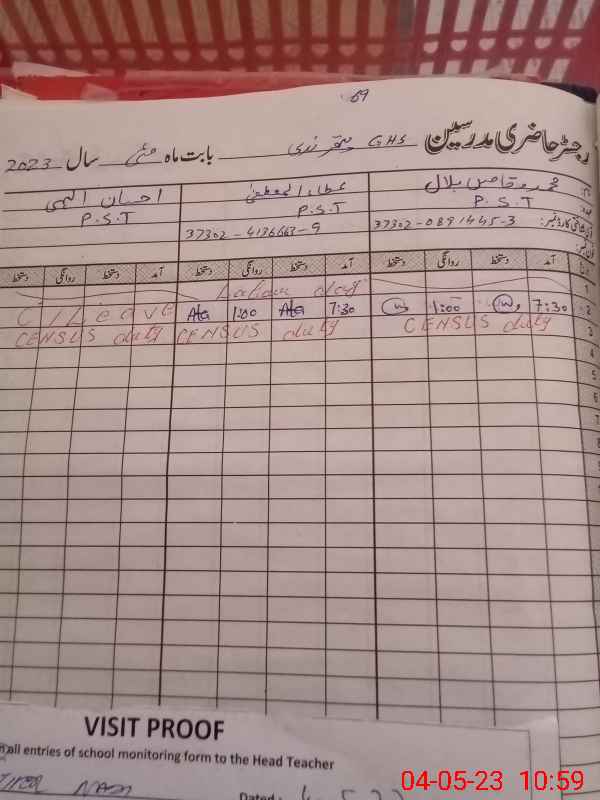 69
رجسٹر حاضری مدرسین GHS بابت ماہ مئی سال 2023
محمد وقاص بلال عطاء المصطفیٰ احسان الہی
P.S.T P.S.T P.S.T
37302-0891445-3 37302-4136663-9
آمد دستخط روانگی دستخط آمد دستخط روانگی دستخط آمد دستخط روانگی دستخط
1 Labour day
2 7:30 1:00 7:30 Ata 1:00 Ata C/Leave
3 CENSUS duty CENSUS duty CENSUS duty
4
5
6
7
8
9
VISIT PROOF
all entries of school monitoring form to the Head Teacher
Dated:
04-05-23 10:59